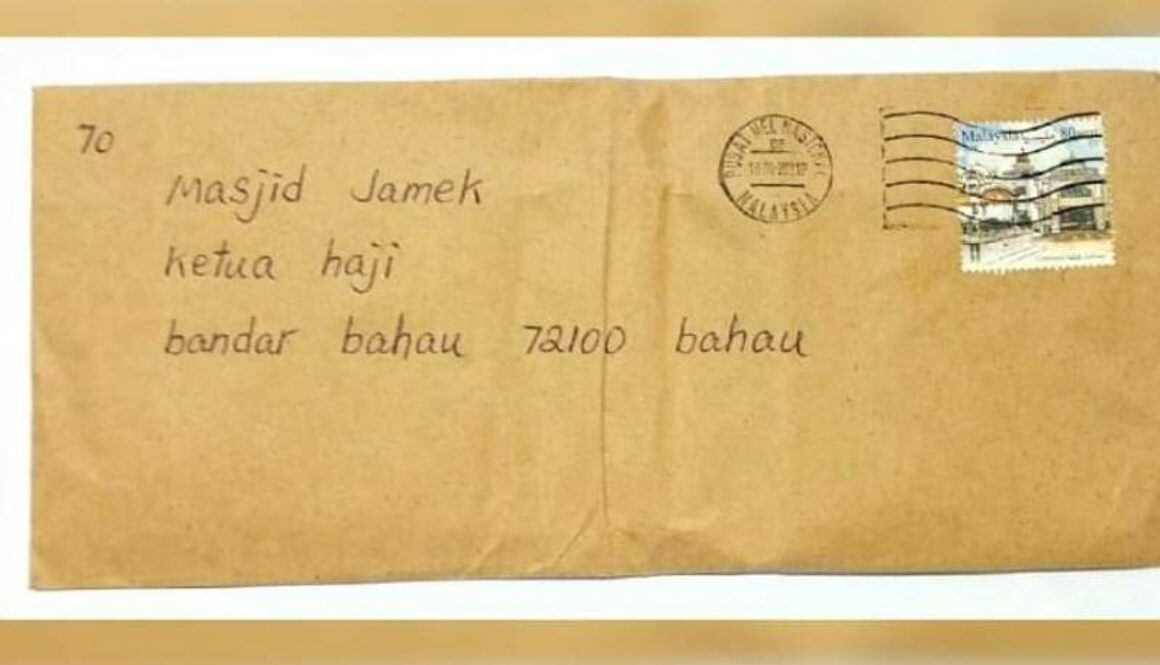 70
Masjid Jamek
Ketua haji
bandar bahau 72100 bahau
PUSAT MEL NASIONAL
MALAYSIA
Malaysia 80